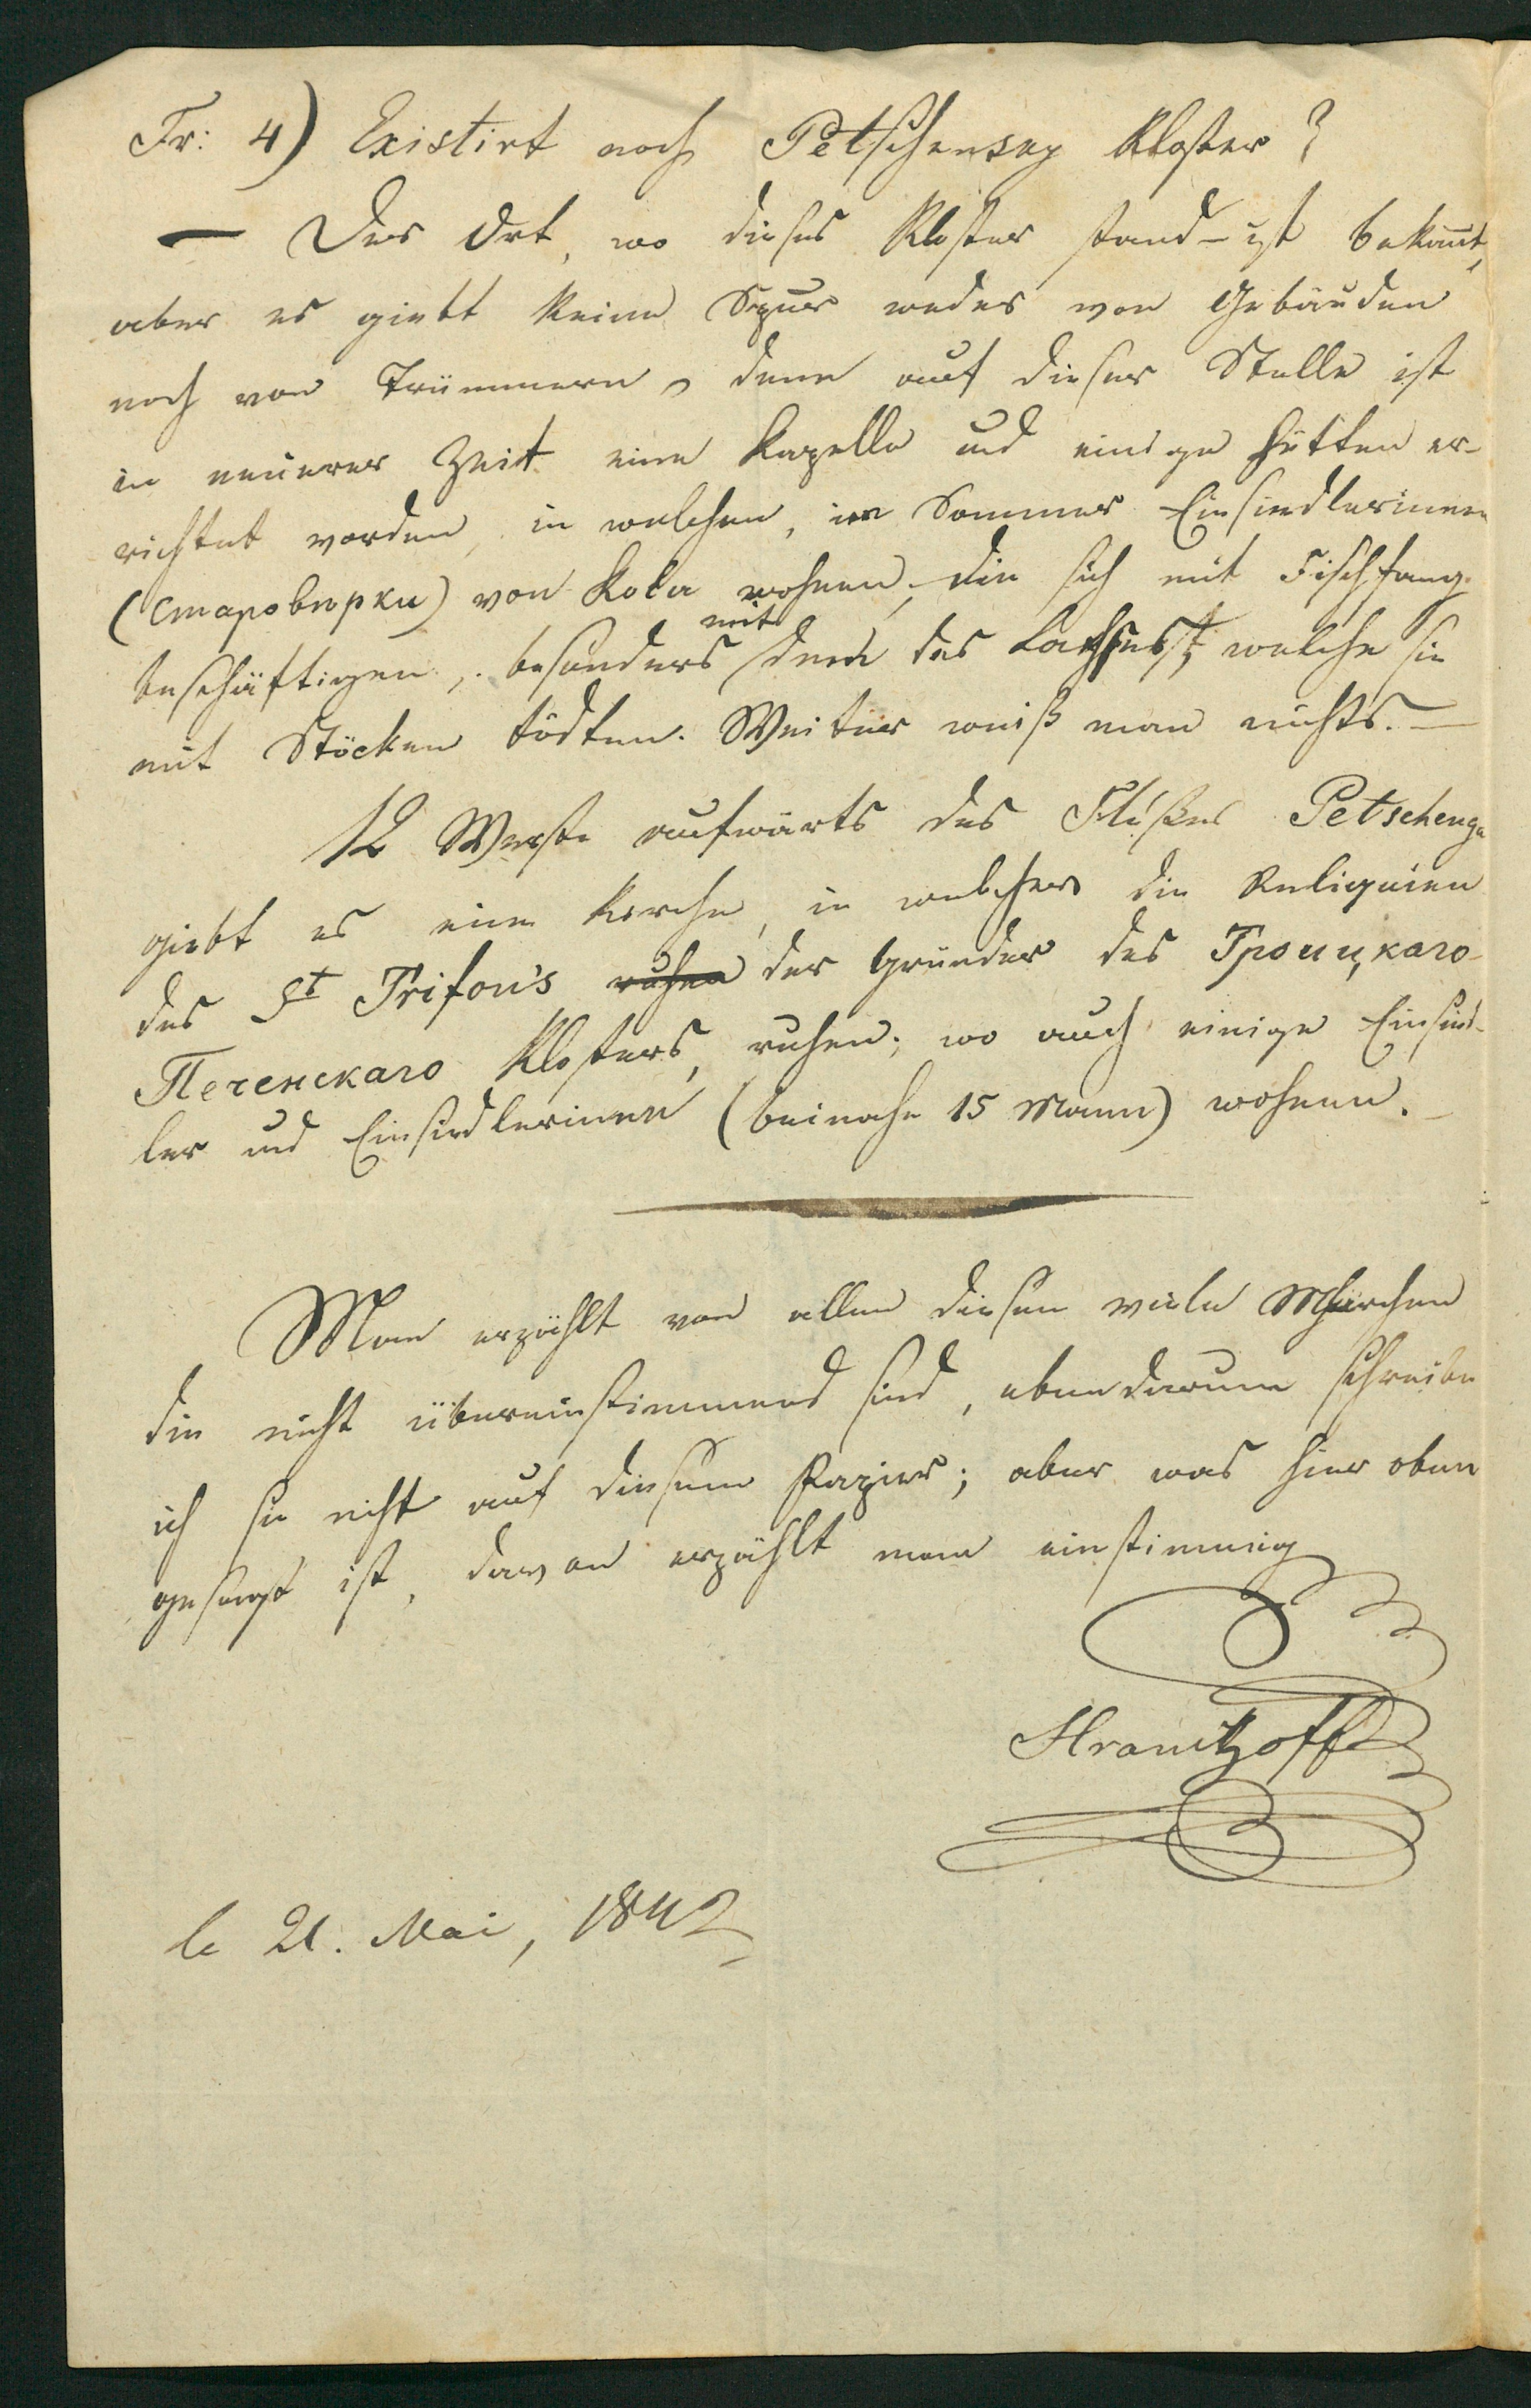 Fr: 4) Existirt noch Petschensky Kloster?
— Der Ort, wo dieses Kloster stand – ist bekannt,
aber es giebt keine Spur weder von Gebäuden
noch von Trümmern, denn auf dieser Stelle ist
in neuerer Zeit eine Kapelle und einige Hütten er-
richtet worden, in welchen, im Sommer Einsiedlerinnen
(старовѣрки) von Kola wohnen, die sich mit Fischfang
beschäftigen, besonders mit dem des Lachses, welche sie
mit Stöcken tödten. Weiter weiß man nichts. —
12 Werste aufwärts des Flußes Petschenga
giebt es eine Kirche, in welcher die Reliquien
des St Trifon's ruhen der Gründer des Троицкаго-
Печенскаго Klosters, ruhen; wo auch einige Einsied-
ler und Einsiedlerinnen (beinahe 15 Mann) wohnen. —
Man erzählt von allen diesen viele Mährchen
die nicht übereinstimmend sind, eben darum schreibe
ich sie nicht auf diesem Papier; aber was hier oben
gesagt ist, davon erzählt man einstimmig
le 21. Mai, 1842